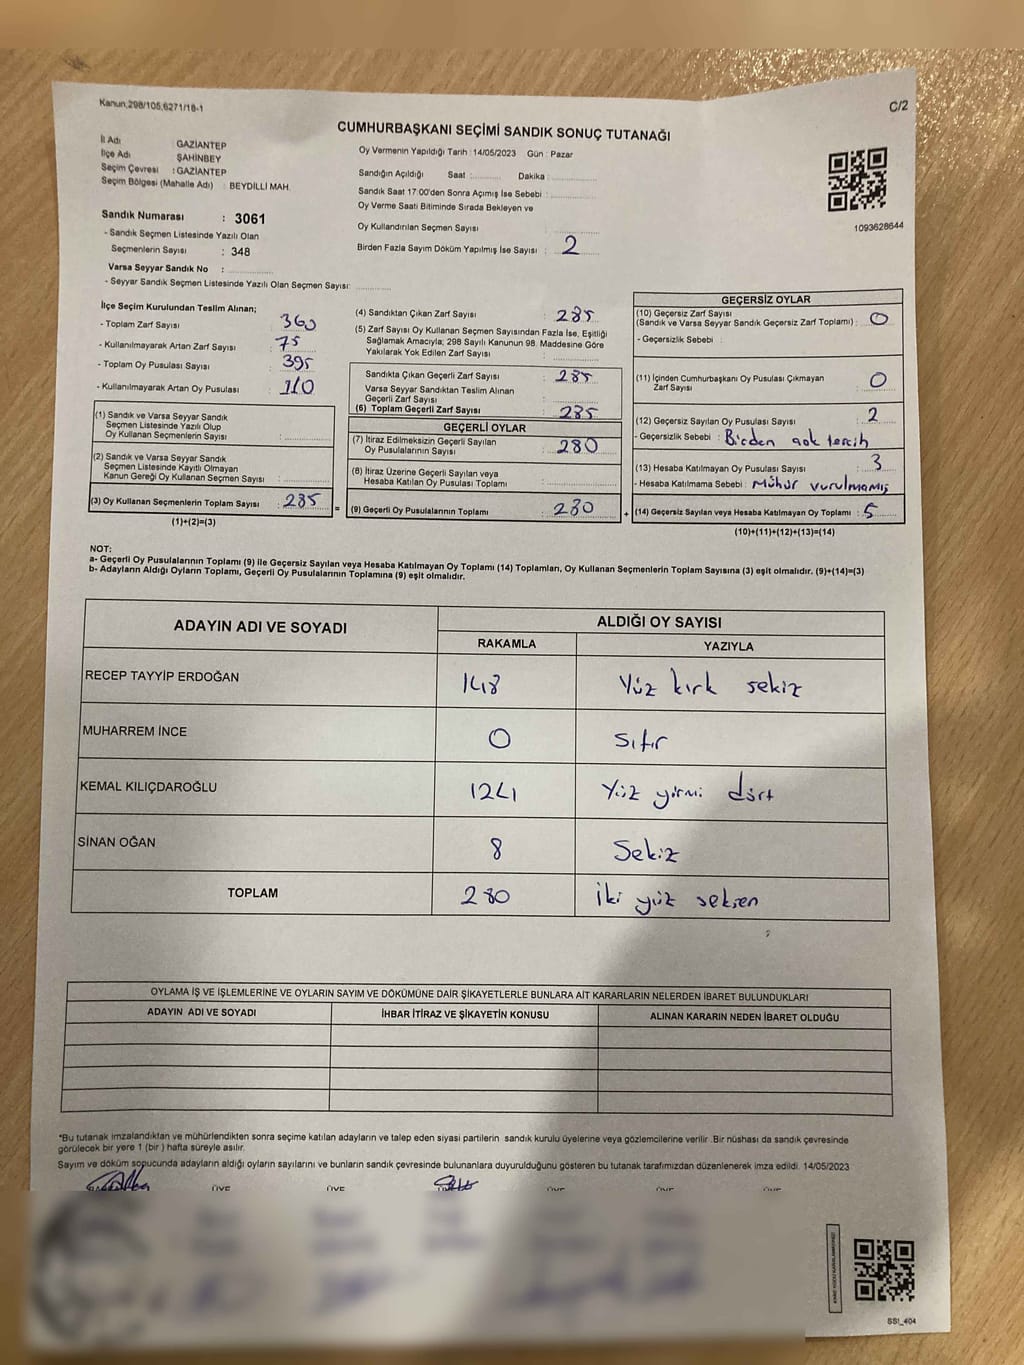 Kanun,298/105,6271/18-1
C/2
CUMHURBAŞKANI SEÇİMİ SANDIK SONUÇ TUTANAĞI
İl Adı : GAZİANTEP
İlçe Adı : ŞAHİNBEY
Seçim Çevresi : GAZİANTEP
Seçim Bölgesi (Mahalle Adı) : BEYDİLLİ MAH.
Oy Vermenin Yapıldığı Tarih : 14/05/2023 Gün : Pazar
Sandığın Açıldığı Saat : Dakika :
Sandık Saat 17:00'den Sonra Açımış İse Sebebi :
Oy Verme Saati Bitiminde Sırada Bekleyen ve
Oy Kullandırılan Seçmen Sayısı :
Birden Fazla Sayım Döküm Yapılmış İse Sayısı : 2
1093628644
Sandık Numarası : 3061
- Sandık Seçmen Listesinde Yazılı Olan
Seçmenlerin Sayısı : 348
Varsa Seyyar Sandık No :
- Seyyar Sandık Seçmen Listesinde Yazılı Olan Seçmen Sayısı:
İlçe Seçim Kurulundan Teslim Alınan;
- Toplam Zarf Sayısı : 360
- Kullanılmayarak Artan Zarf Sayısı : 75
- Toplam Oy Pusulası Sayısı : 395
- Kullanılmayarak Artan Oy Pusulası : 110
(1) Sandık ve Varsa Seyyar Sandık
Seçmen Listesinde Yazılı Olup
Oy Kullanan Seçmenlerin Sayısı :
(2) Sandık ve Varsa Seyyar Sandık
Seçmen Listesinde Kayıtlı Olmayan
Kanun Gereği Oy Kullanan Seçmen Sayısı :
(3) Oy Kullanan Seçmenlerin Toplam Sayısı : 285
(1)+(2)=(3)
(4) Sandıktan Çıkan Zarf Sayısı : 285
(5) Zarf Sayısı Oy Kullanan Seçmen Sayısından Fazla İse, Eşitliği
Sağlamak Amacıyla; 298 Sayılı Kanunun 98. Maddesine Göre
Yakılarak Yok Edilen Zarf Sayısı :
Sandıkta Çıkan Geçerli Zarf Sayısı : 285
Varsa Seyyar Sandıktan Teslim Alınan
Geçerli Zarf Sayısı :
(6) Toplam Geçerli Zarf Sayısı : 285
GEÇERLİ OYLAR
(7) İtiraz Edilmeksizin Geçerli Sayılan
Oy Pusulalarının Sayısı : 280
(8) İtiraz Üzerine Geçerli Sayılan veya
Hesaba Katılan Oy Pusulası Toplamı :
= (9) Geçerli Oy Pusulalarının Toplamı : 280 +
GEÇERSİZ OYLAR
(10) Geçersiz Zarf Sayısı
(Sandık ve Varsa Seyyar Sandık Geçersiz Zarf Toplamı) : 0
- Geçersizlik Sebebi :
(11) İçinden Cumhurbaşkanı Oy Pusulası Çıkmayan
Zarf Sayısı : 0
(12) Geçersiz Sayılan Oy Pusulası Sayısı : 2
- Geçersizlik Sebebi : Birden çok tercih
(13) Hesaba Katılmayan Oy Pusulası Sayısı : 3
- Hesaba Katılmama Sebebi : Mühür vurulmamış
(14) Geçersiz Sayılan veya Hesaba Katılmayan Oy Toplamı : 5
(10)+(11)+(12)+(13)=(14)
NOT:
a- Geçerli Oy Pusulalarının Toplamı (9) ile Geçersiz Sayılan veya Hesaba Katılmayan Oy Toplamı (14) Toplamları, Oy Kullanan Seçmenlerin Toplam Sayısına (3) eşit olmalıdır. (9)+(14)=(3)
b- Adayların Aldığı Oyların Toplamı, Geçerli Oy Pusulalarının Toplamına (9) eşit olmalıdır.
ADAYIN ADI VE SOYADI ALDIĞI OY SAYISI
RAKAMLA YAZIYLA
RECEP TAYYİP ERDOĞAN 148 Yüz kırk sekiz
MUHARREM İNCE 0 sıfır
KEMAL KILIÇDAROĞLU 124 Yüz yirmi dört
SİNAN OĞAN 8 Sekiz
TOPLAM 280 İki yüz seksen
OYLAMA İŞ VE İŞLEMLERİNE VE OYLARIN SAYIM VE DÖKÜMÜNE DAİR ŞİKAYETLERLE BUNLARA AİT KARARLARIN NELERDEN İBARET BULUNDUKLARI
ADAYIN ADI VE SOYADI İHBAR İTİRAZ VE ŞİKAYETİN KONUSU ALINAN KARARIN NEDEN İBARET OLDUĞU
*Bu tutanak imzalandıktan ve mühürlendikten sonra seçime katılan adayların ve talep eden siyasi partilerin sandık kurulu üyelerine veya gözlemcilerine verilir. Bir nüshası da sandık çevresinde
görülecek bir yere 1 (bir ) hafta süreyle asılır.
Sayım ve döküm sonucunda adayların aldığı oyların sayılarını ve bunların sandık çevresinde bulunanlara duyurulduğunu gösteren bu tutanak tarafımızdan düzenlenerek imza edildi. 14/05/2023
SSI_404